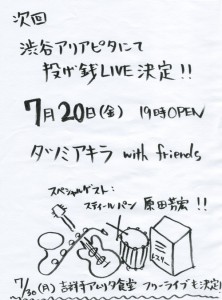 次回
渋谷アリアピタにて
投げ銭LIVE決定!!
7月20日(金) 19時OPEN
ダツミアキラ with friends
スペシャルゲスト:
スティールパン 原田芳宏!!
7/30(月) 吉祥寺アムリタ食堂 フリーライブも決定